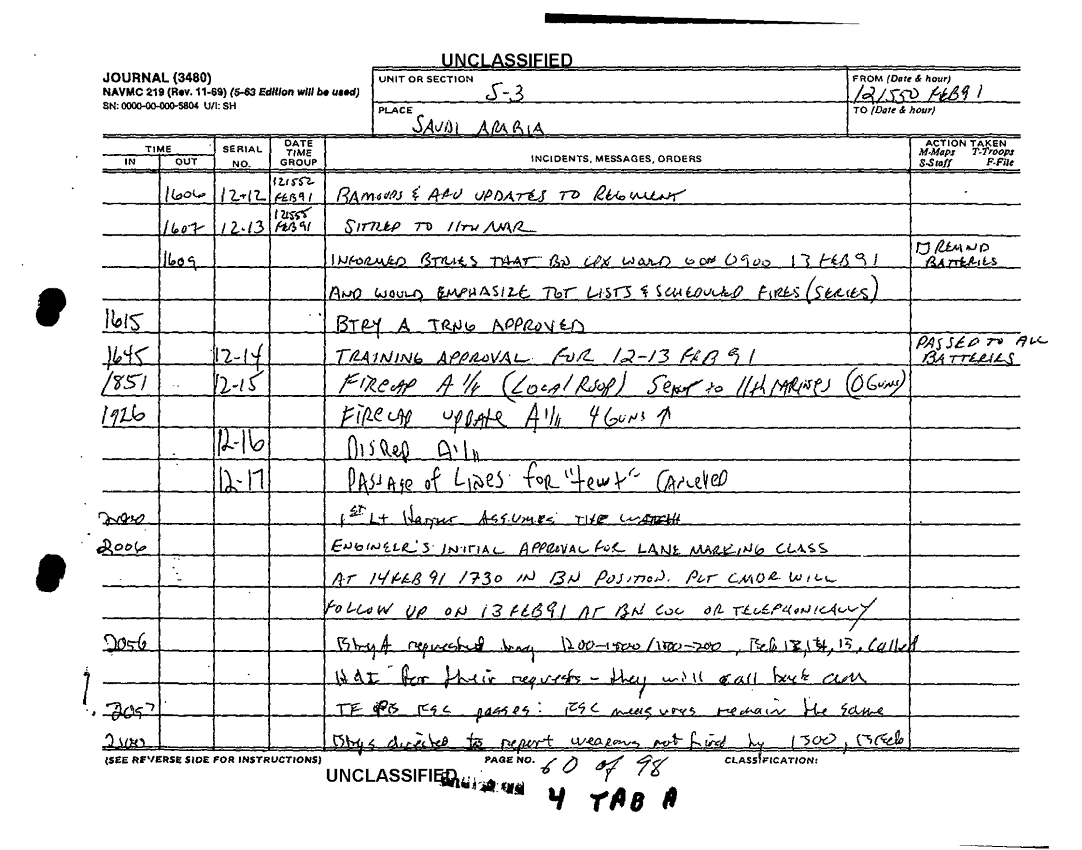 UNCLASSIFIED
JOURNAL (3480)
NAVMC 219 (Rev. 11-69) (5-63 Edition will be used)
SN: 0000-00-000-5804 U/I: SH
UNIT OR SECTION
S-3
FROM (Date & hour)
121550 FEB91
PLACE
SAUDI ARABIA
TO (Date & hour)
TIME
IN OUT
SERIAL NO.
DATE TIME GROUP
INCIDENTS, MESSAGES, ORDERS
ACTION TAKEN
M-Maps T-Troops
S-Staff F-File
1606 12-12 121552 FEB91 & UPDATES TO REGIMENT
1607 12-13 121555 FEB91 SITREP TO 11TH MAR
1609 INFORMED BTRIES THAT BN CPX WOULD 0900 13 FEB 91
REMIND BATTERIES
AND WOULD EMPHASIZE TGT LISTS & SCHEDULED FIRES (SERIES)
1615 BTRY A TRNG APPROVED
1645 12-14 TRAINING APPROVAL FOR 12-13 FEB 91
PASSED TO ALL BATTERIES
1851 12-15 FIRECAP A 1/11 (LOCAL RSOP) SENT to 11th MARINES (0 Guns)
1926 FIRECAP UPDATE A 1/11 4 GUNS ↑
12-16 DISREP A 1/11
12-17 PASSAGE of LINES for "tewt" CANCELED
2000 1ST Lt ASSUMES THE WATCH
2006 ENGINEER'S INITIAL APPROVAL FOR LANE MARKING CLASS
AT 14 FEB 91 1730 IN BN POSITION. PLT CMDR WILL
FOLLOW UP ON 13 FEB 91 AT BN COC OR TELEPHONICALLY
2056 Btry A requested 1200-1500/ , Feb 13, 14, 15, Called
for their requests - they will call back
2057 passes: measures remain the same
2100 Btrys directed to report weapons not fired by 1500, 13 Feb
(SEE REVERSE SIDE FOR INSTRUCTIONS)
PAGE NO. 60 of 98
CLASSIFICATION:
UNCLASSIFIED
4 TAB A